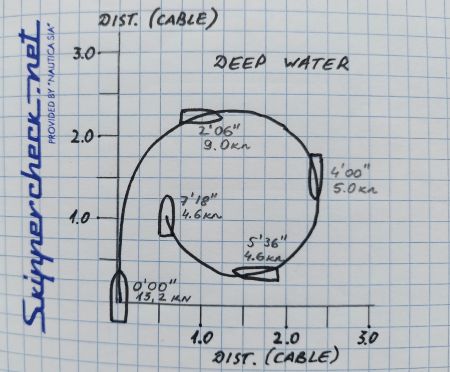 DIST. (CABLE)
Skippercheck.net
PROVIDED BY "NAUTICA SIA"
3.0
DEEP WATER
2'06"
9.0кл
2.0
4'00"
5.0кл
7'18"
4.6кл
1.0
5'36"
4.6кл
0'00"
13,2 кN
1.0
2.0
3.0
DIST. (CABLE)